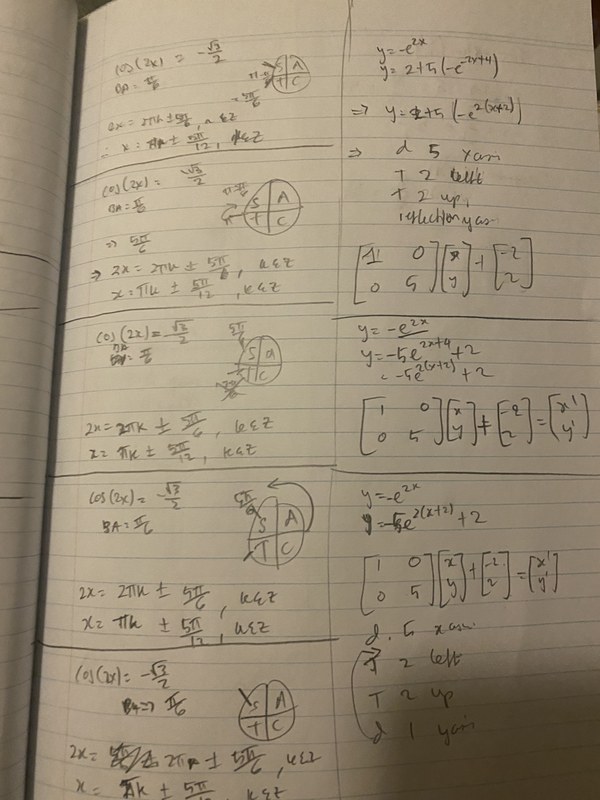 cos(2x) = -√3/2
BA = π/6
S A
T C
= 5π/6
2x = 2πk ± 5π/6, k∈Z
∴ x = πk ± 5π/12, k∈Z
cos(2x) = -√3/2
BA = π/6
S A
T C
⇒ 5π/6
⇒ 2x = 2πk ± 5π/6, k∈Z
x = πk ± 5π/12, k∈Z
cos(2x) = -√3/2
BA = π/6
5π/6
S a
T C
2x = 2πk ± 5π/6, k∈Z
x = πk ± 5π/12, k∈Z
cos(2x) = -√3/2
BA = π/6
5π/6
S A
T C
2x = 2πk ± 5π/6, k∈Z
x = πk ± 5π/12, k∈Z
cos(2x) = -√3/2
BA => π/6
S A
T C
2x = 2πk ± 5π/6, k∈Z
x = πk ± 5π/12, k∈Z
y = -e^{2x}
y = 2+5(-e^{2x+4})
⇒ y = 2+5(-e^{2(x+2)})
⇒ d 5 xaxis
T 2 left
T 2 up,
reflection yaxis
[1 0; 0 5][x; y] + [-2; 2]
y = -e^{2x}
y = -5e^{2x+4}+2
= -5e^{2(x+2)}+2
[1 0; 0 5][x; y] + [-2; 2] = [x'; y']
y = -e^{2x}
y = -5e^{2(x+2)}+2
[1 0; 0 5][x; y] + [-2; 2] = [x'; y']
d. 5 xaxis
T 2 left
T 2 up
d 1 yaxis